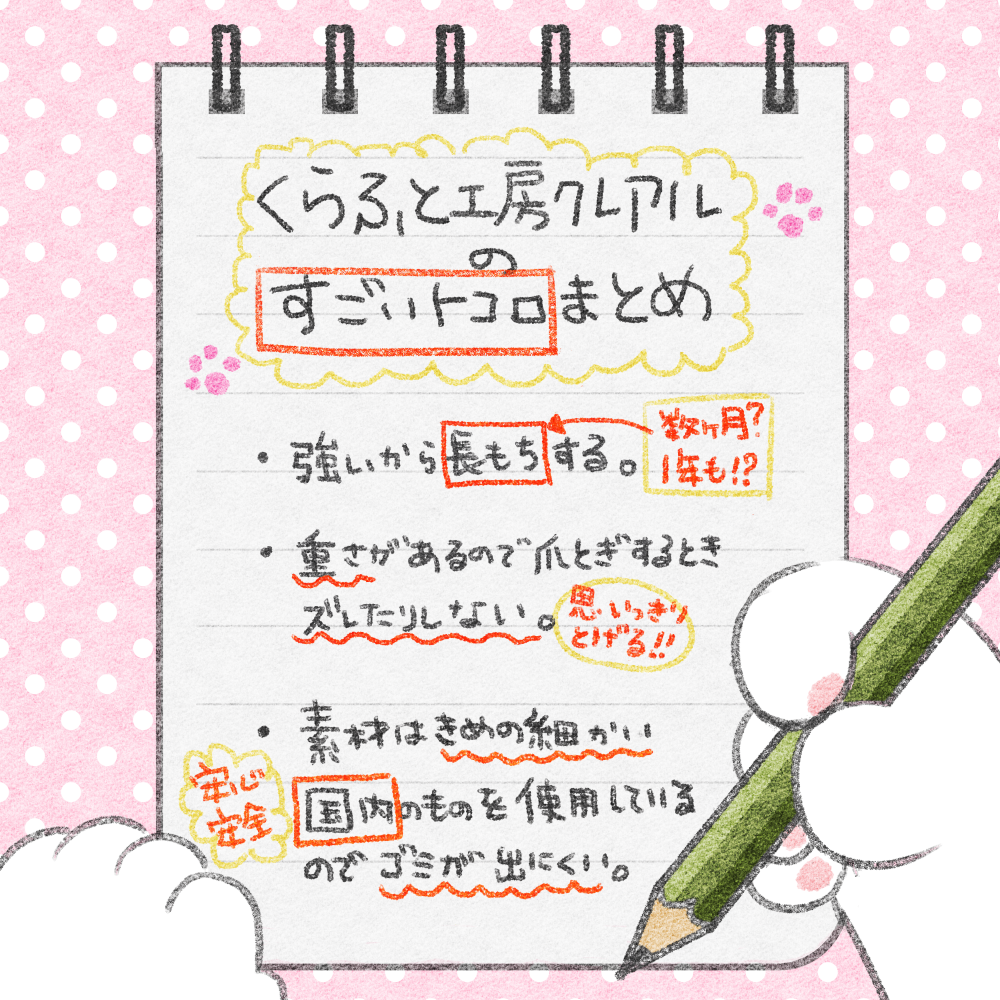 くらふと工房クレアル
の
すごいトコロまとめ
・強いから長もちする。
数ヶ月?
1年も!?
・重さがあるので爪とぎするとき
ズレたりしない。
思いっきり
とげる!!
・素材はきめの細かい
安心
安全
国内のものを使用している
のでゴミが出にくい。